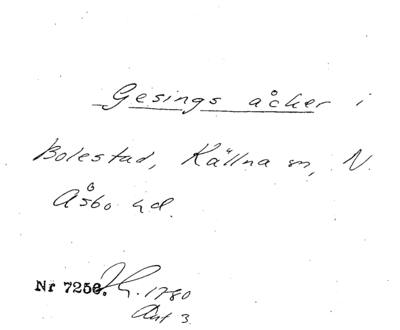 Gesings åcker i
Bolestad, Källna sn, N.
Åsbo hd.
Nr 7256. 1780
Art 3.